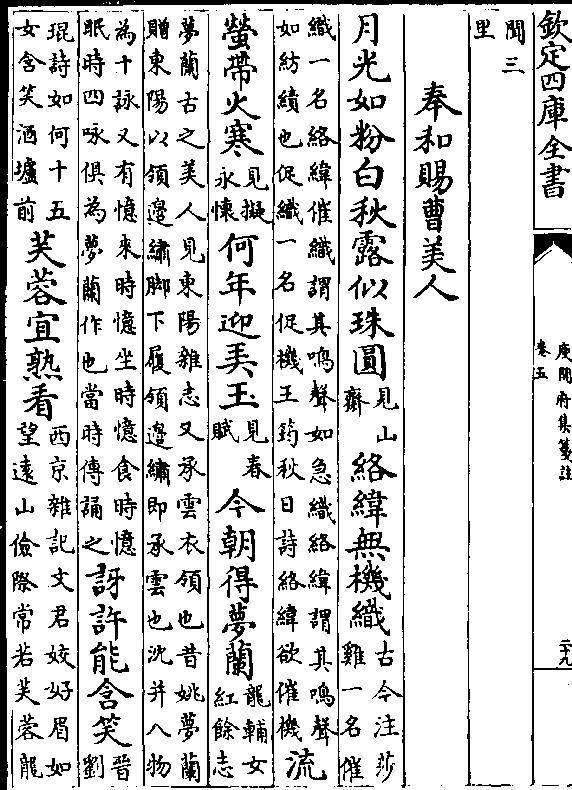 欽定四庫全書
庾開府集箋註
卷五
二十九
聞三
里
奉和賜曹美人
月光如粉白秋露似珠圓見山齋絡緯無機織古今注莎雞一名催
織一名絡緯催織謂其鳴聲如急織絡緯謂其鳴聲
如紡績也促織一名促機王筠秋日詩絡緯欲催機流
螢帶火寒見擬永懷何年迎弄玉見春賦今朝得夢蘭龍輔女紅餘志
夢蘭古之美人見東陽雜志又承雲衣領也昔姚夢蘭
贈東陽以領邊繡脚下履領邊繡即承雲也沈并八物
為十詠又有憶來時憶坐時憶食時憶
眠時四咏俱為夢蘭作也當時傳誦之訝許能含笑晉劉
琨詩如何十五
女含笑酒壚前芙蓉宜熟看西京雜記文君姣好眉如
望遠山儉際常若芙蓉龍